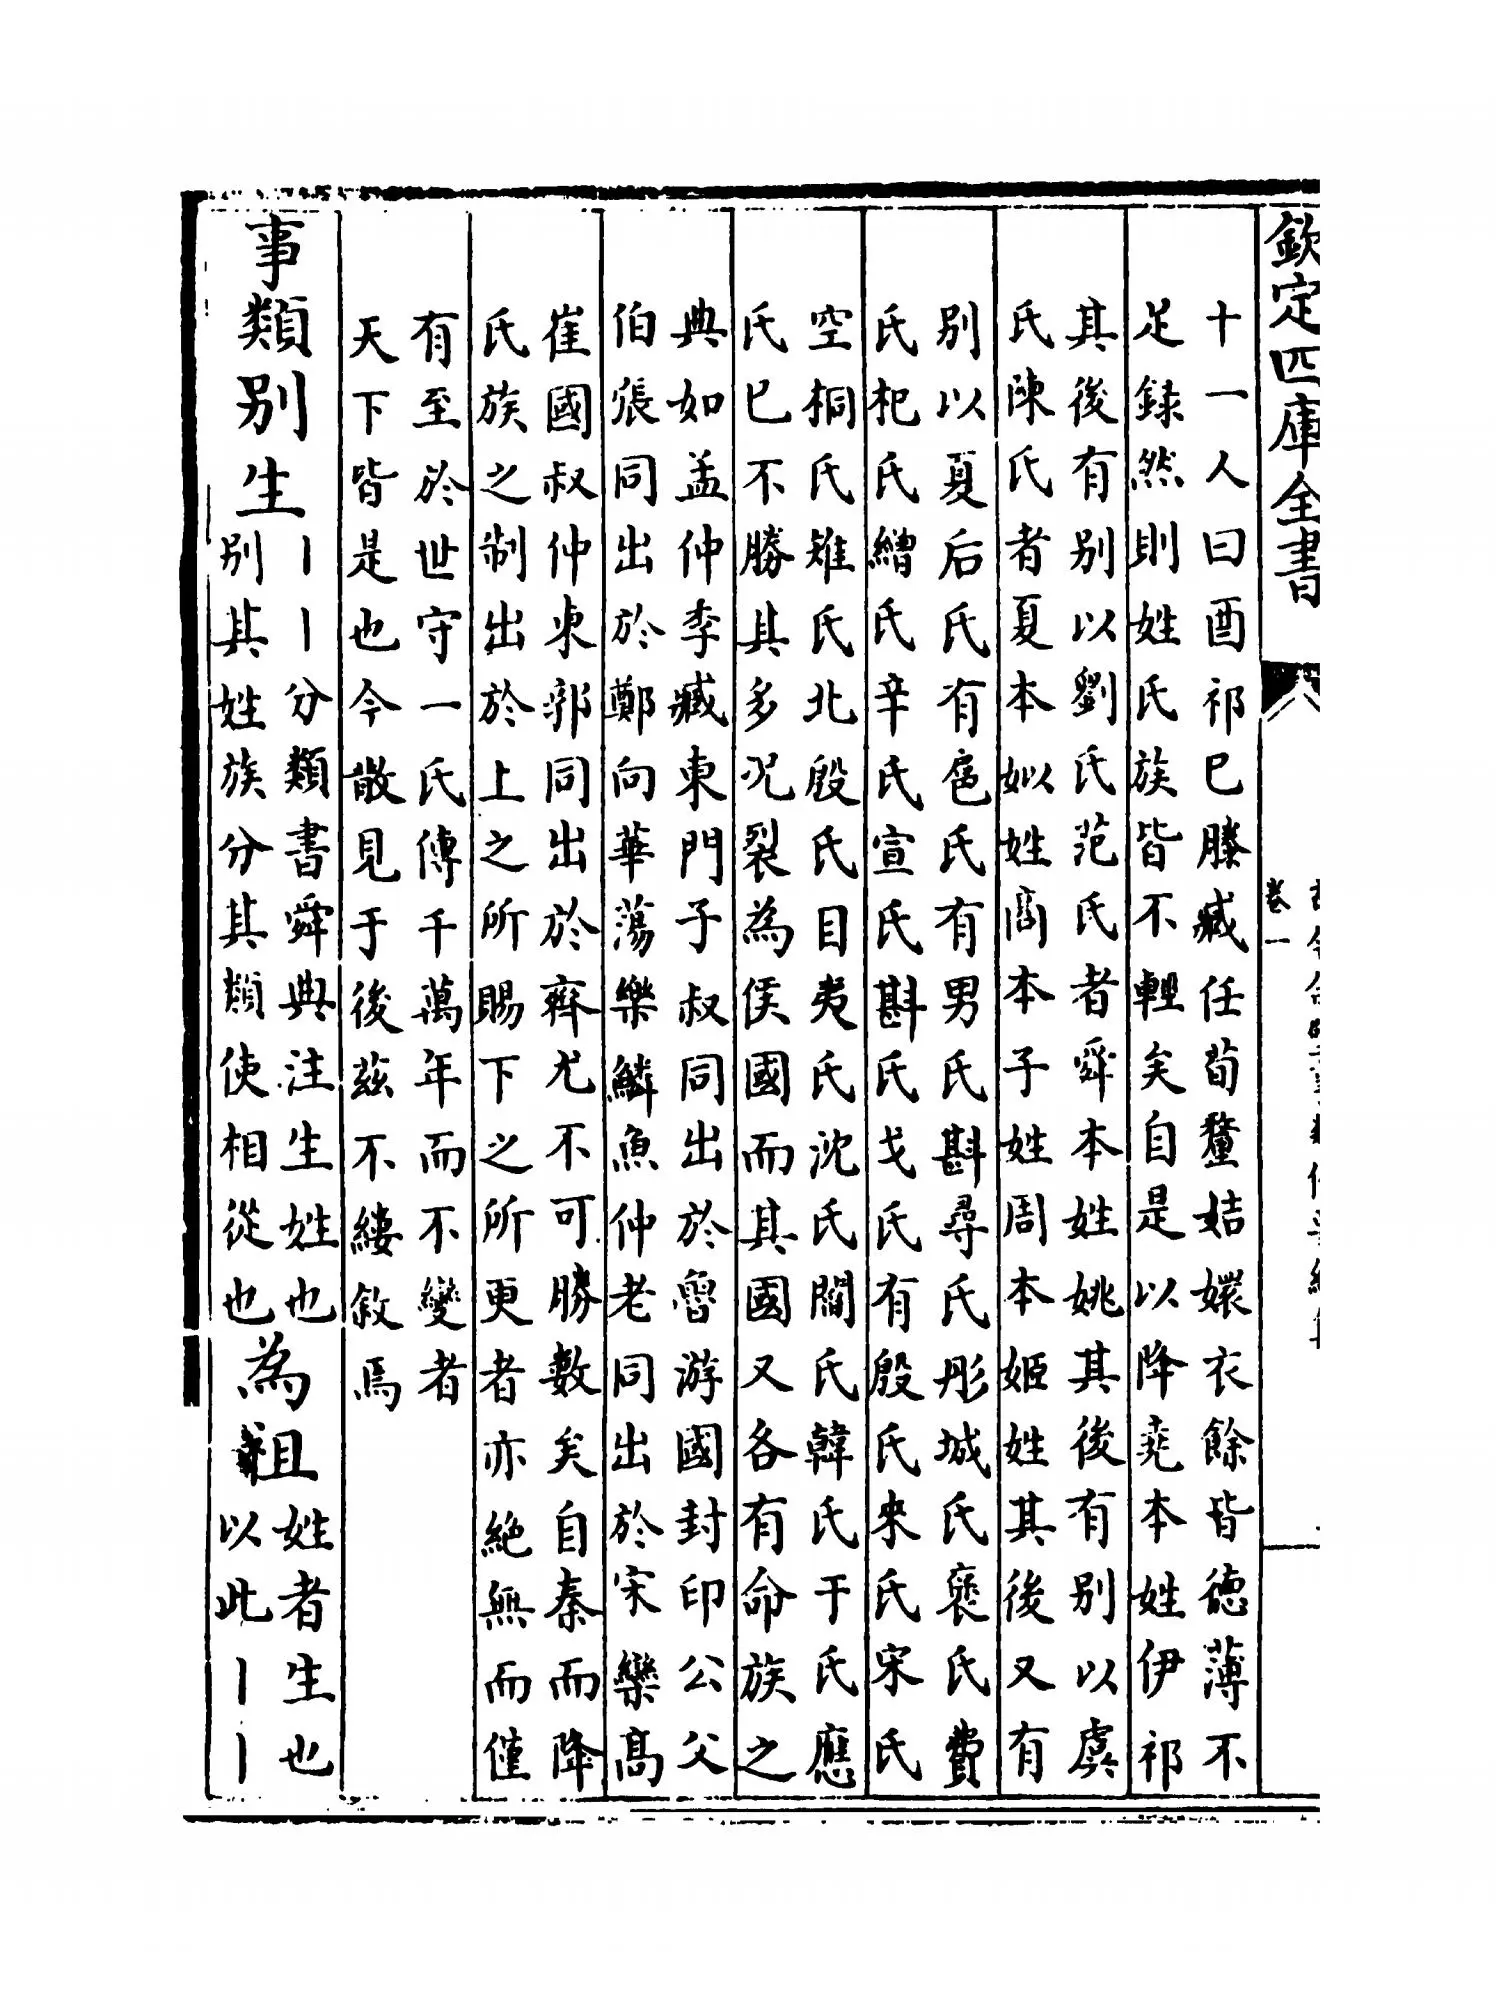 欽定四庫全書
卷一
十一人曰酉祁已滕臧任荀釐姞嬛衣餘皆德薄不
足録然則姓氏族皆不輕矣自是以降堯本姓伊祁
其後有别以劉氏范氏者舜本姓姚其後有别以虞
氏陳氏者夏本姒姓商本子姓周本姬姓其後又有
别以夏后氏有扈氏有男氏斟尋氏彤城氏褒氏費
氏杞氏繒氏辛氏宣氏斟氏戈氏有殷氏來氏宋氏
空桐氏雉氏北殷氏目夷氏沈氏閻氏韓氏于氏應
氏已不勝其多况裂為侯國而其國又各有命族之
典如孟仲季臧東門子叔同出於魯游國封印公父
伯張同出於鄭向華蕩樂鱗魚仲老同出於宋欒高
崔國叔仲東郭同出於齊尤不可勝數矣自秦而降
氏族之制出於上之所賜下之所更者亦絶無而僅
有至於世守一氏傳千萬年而不變者
天下皆是也今散見于後兹不縷敘焉
事類别生
丨丨分類書舜典注生姓也
别其姓族分其類使相從也
為祖
姓者生也
以此丨丨